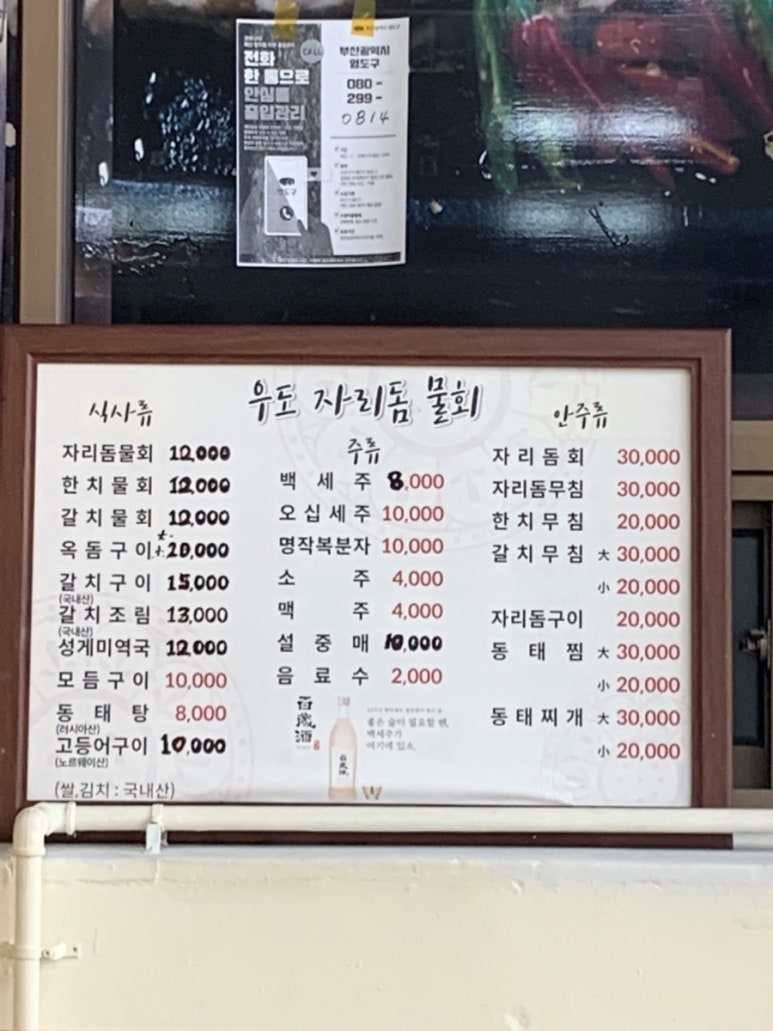 전화
한 통으로
안심콜
출입관리
CALL
부산광역시
영도구
080 -
299 -
0814
영도구
우도 자리돔 물회
식사류
자리돔물회 12,000
한치물회 12,000
갈치물회 12,000
옥돔구이 大 20,000
갈치구이 15,000
(국내산)
갈치조림 13,000
(국내산)
성게미역국 12,000
모듬구이 10,000
동태탕 8,000
(러시아산)
고등어구이 10,000
(노르웨이산)
(쌀,김치 : 국내산)
주류
백세주 8,000
오십세주 10,000
명작복분자 10,000
소주 4,000
맥주 4,000
설중매 10,000
음료수 2,000
百歲酒
좋은 술이 필요할 땐,
백세주가
여기에 있소.
안주류
자리돔회 30,000
자리돔무침 30,000
한치무침 20,000
갈치무침 大 30,000
小 20,000
자리돔구이 20,000
동태찜 大 30,000
小 20,000
동태찌개 大 30,000
小 20,000